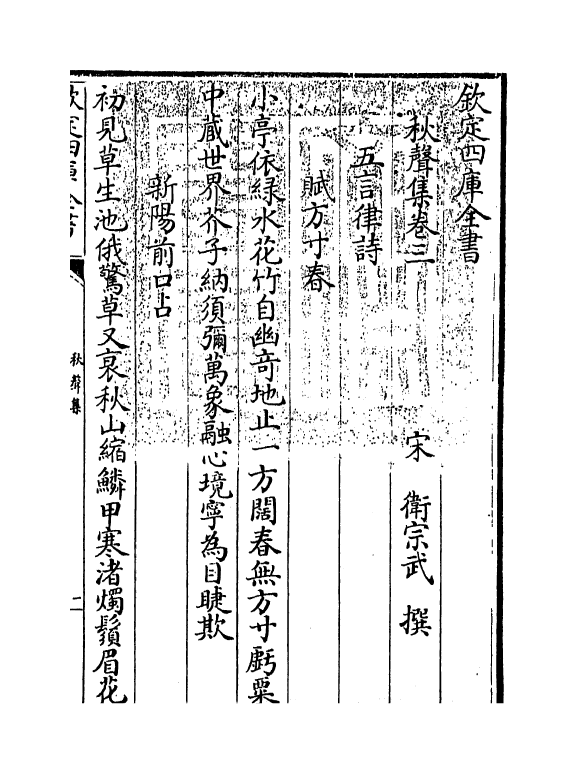 欽定四庫全書
秋聲集卷三
宋 衛宗武 撰
五言律詩
賦方寸春
小亭依綠水花竹自幽奇地止一方闊春無方寸虧粟
中藏世界芥子納須彌萬象融心境寧為目睫欺
新陽前口占
初見草生池俄驚草又衰秋山縮鱗甲寒渚燭鬚眉花
欽定四庫全書
秋聲集
二